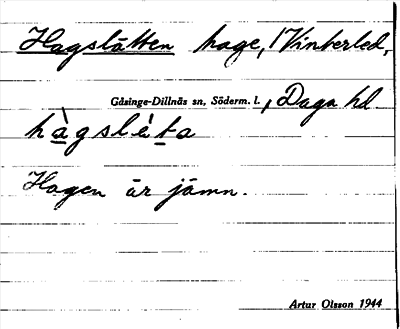 Hagslätten hage, Vinterled,
Gåsinge-Dillnäs sn, Söderm. l., Daga hd
hàgslèta
Hagen är jämn.
Artur Olsson 1944